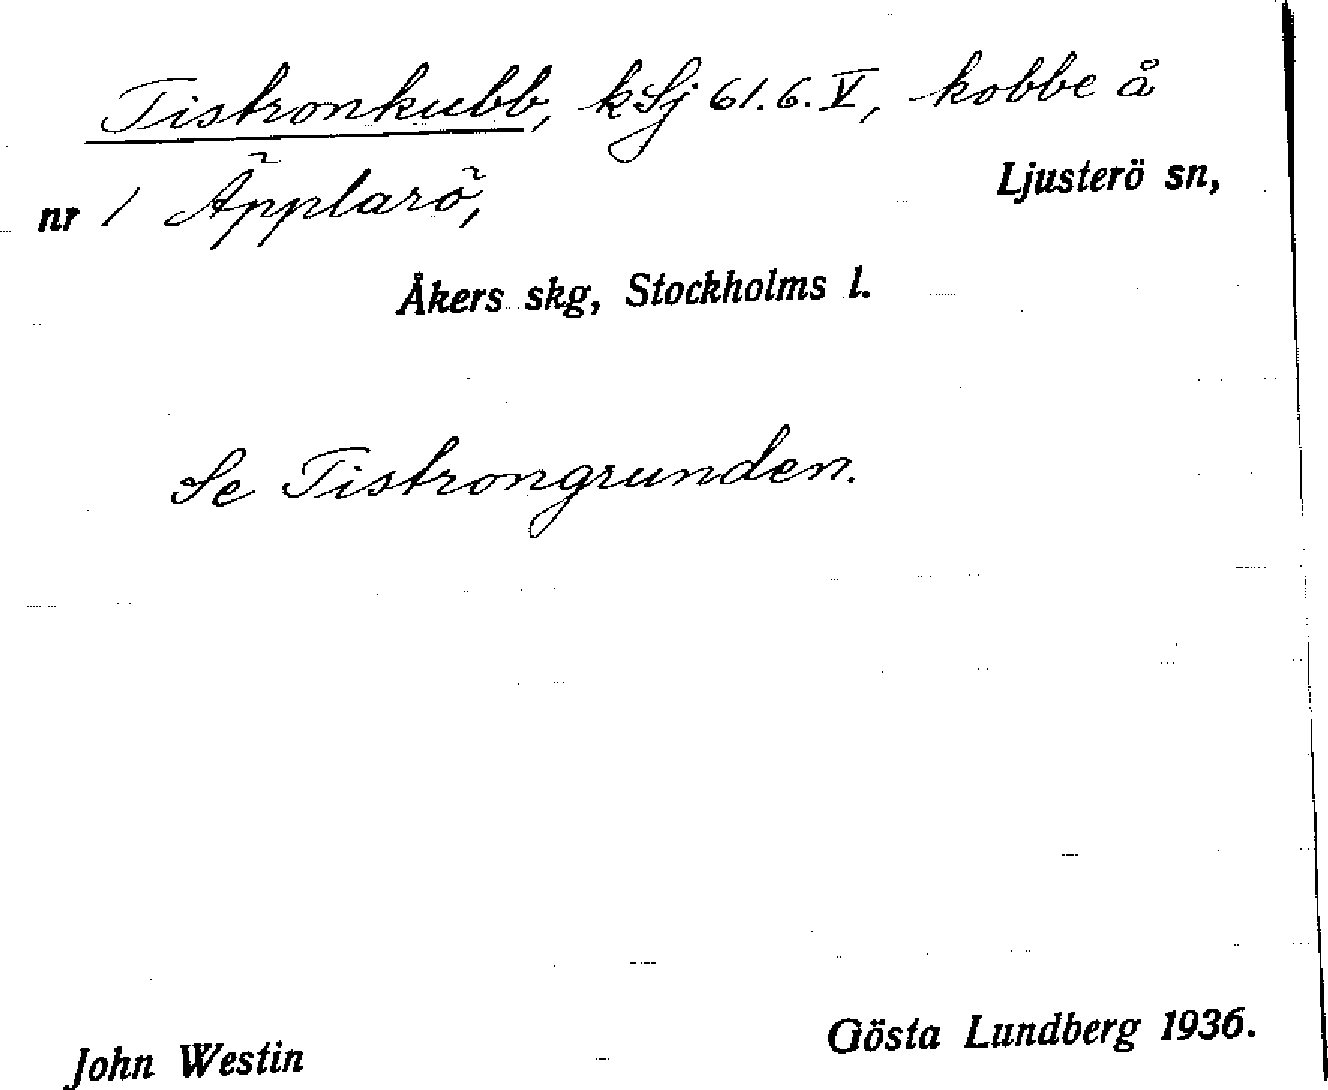 Tistronkubb, kSj 61.6.V, kobbe å
Ljusterö sn,
nr 1 Äpplarö,
Åkers skg, Stockholms l.
Se Tistrongrunden.
John Westin
Gösta Lundberg 1936.